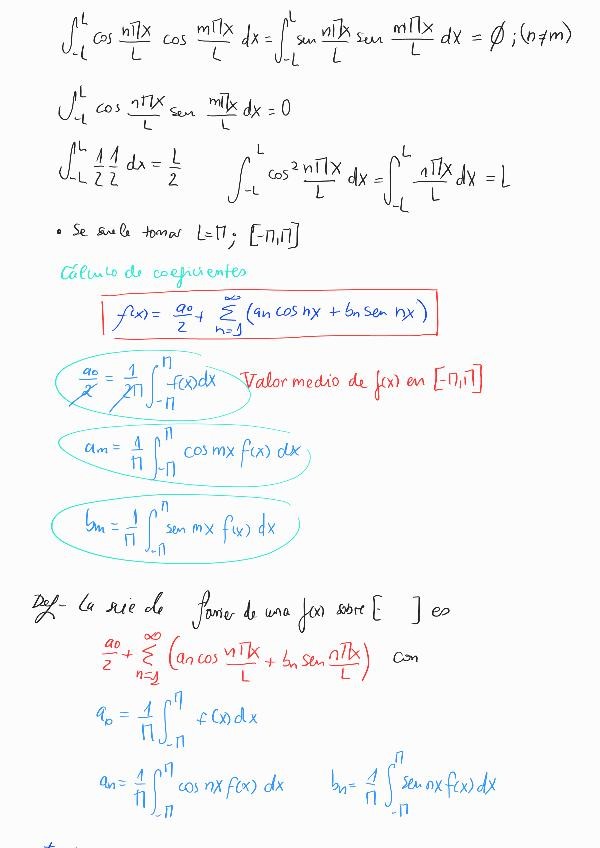 ∫_{-L}^{L} cos nΠx/L cos mΠx/L dx = ∫_{-L}^{L} sen nΠx/L sen mΠx/L dx = ∅ ; (n≠m)
∫_{-L}^{L} cos nΠx/L sen mΠx/L dx = 0
∫_{-L}^{L} 1/2 1/2 dx = L/2 ∫_{-L}^{L} cos² nΠx/L dx = ∫_{-L}^{L} nΠx/L dx = L
• Se suele tomar L=Π; [-Π,Π]
Cálculo de coeficientes
f(x) = a0/2 + ∑_{n=1}^{∞} (an cos nx + bn sen nx)
a0/2 = 1/2Π ∫_{-Π}^{Π} f(x)dx Valor medio de f(x) en [-Π,Π]
am = 1/Π ∫_{-Π}^{Π} cos mx f(x) dx
bm = 1/Π ∫_{-Π}^{Π} sen mx f(x) dx
Def- La rie de Fourier de una f(x) sobre [ ] es
a0/2 + ∑_{n=1}^{∞} (an cos nΠx/L + bn sen nΠx/L) con
a0 = 1/Π ∫_{-Π}^{Π} f(x)dx
an = 1/Π ∫_{-Π}^{Π} cos nx f(x) dx bn = 1/Π ∫_{-Π}^{Π} sen nx f(x) dx